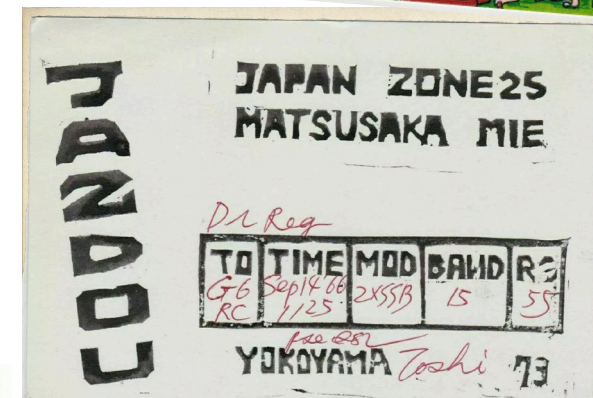 JA2DOU
JAPAN ZONE25
MATSUSAKA MIE
Dr Reg
TO TIME MOD BAND RS
G6 Sep 14 66 2XSSB 15 55
RC 1125
pse QSL
YOKOYAMA Toshi 73